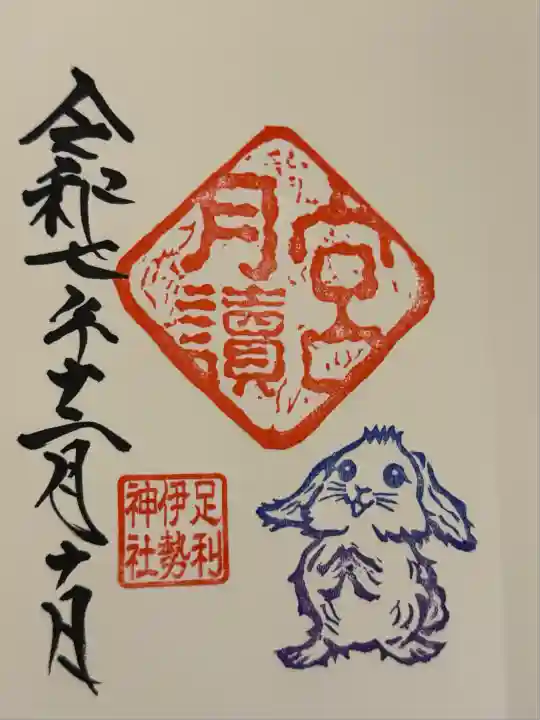 月讀
宮
足利
伊勢
神社
令和七年十二月十日